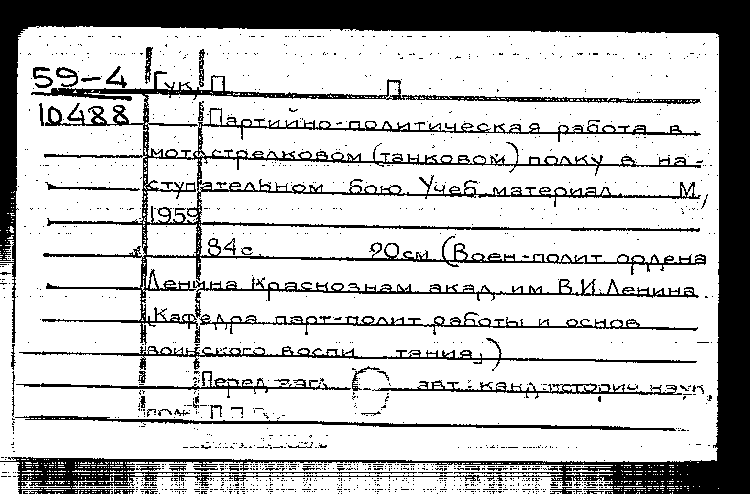 59-4 Гук, П П
10488 Партийно-политическая работа в
мотострелковом (танковом) полку в на-
ступательном бою. Учеб. материал. М,
1959
84с. 20см (Воен-полит ордена
Ленина Краснознам акад. им В.И.Ленина
Кафедра парт-полит работы и основ
воинского воспитания.)
Перед загл. авт: канд историч наук,